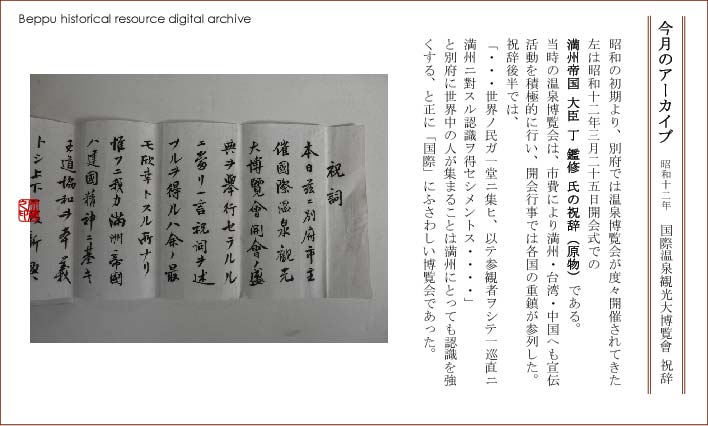 Beppu historical resource digital archive
今月のアーカイブ 昭和十二年 国際温泉観光大博覧會 祝辞
昭和の初期より、別府では温泉博覧会が度々開催されてきた
左は昭和十二年三月二十五日開会式での
満州帝国 大臣 丁 鑑修 氏の祝辞（原物）である。
当時の温泉博覧会は、市費により満州・台湾・中国へも宣伝
活動を積極的に行い、開会行事では各国の重鎮が参列した。
祝辞後半では、
「・・・世界ノ民ガ一堂ニ集ヒ、以テ参観者ヲシテ一巡直ニ
満州ニ對スル認識ヲ得セシメントス・・・・」
と別府に世界中の人が集まることは満州にとっても認識を強
くする、と正に「国際」にふさわしい博覧会であった。
祝詞
本日茲ニ別府市主
催國際温泉觀光
大博覽會開會ノ盛
典ヲ擧行セラルル
ニ當リ一言祝詞ヲ述
ブルヲ得ルハ余ノ最
モ欣幸トスル所ナリ
惟フニ我カ滿洲帝國
ハ建國精神ニ基キ
王道協和ヲ本義
トシ上下